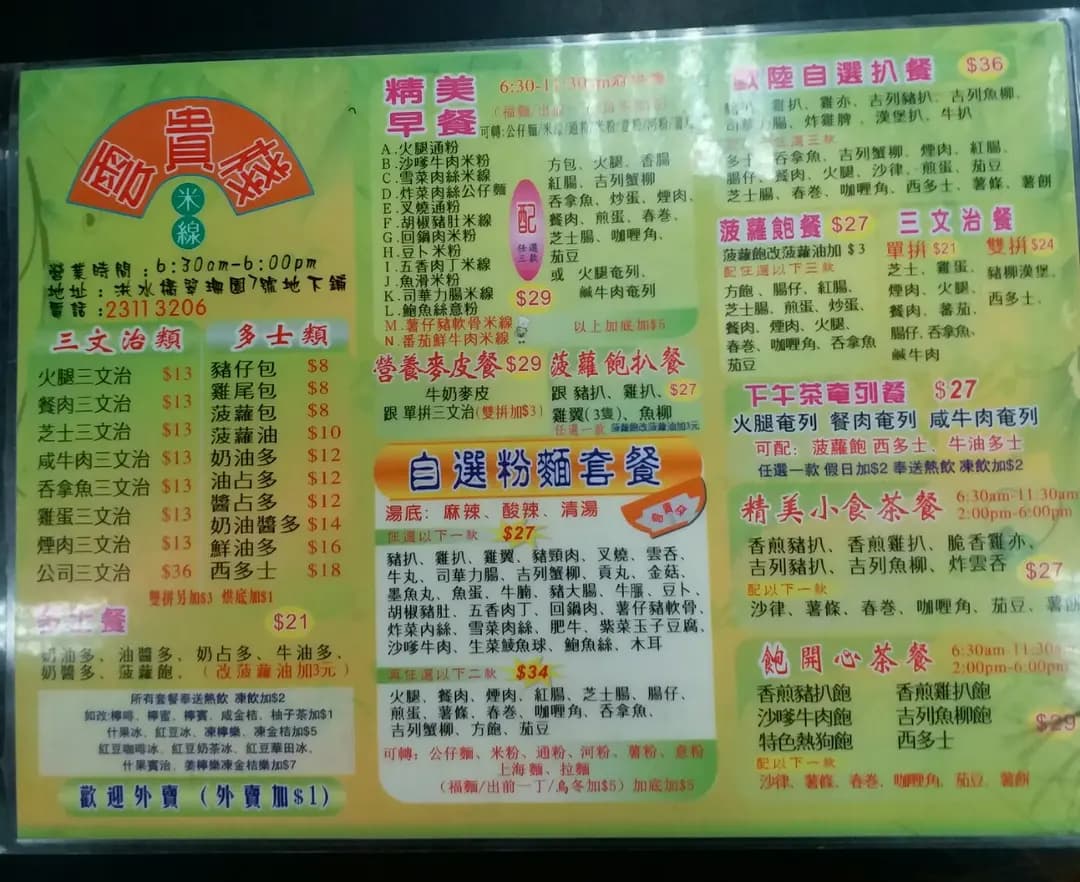 雲貴棧
米線
營業時間：6:30am-6:00pm
地址：洪水橋翠珊園7號地下鋪
電話：2311 3206
三文治類
火腿三文治 $13
餐肉三文治 $13
芝士三文治 $13
咸牛肉三文治 $13
吞拿魚三文治 $13
雞蛋三文治 $13
煙肉三文治 $13
公司三文治 $36
多士類
豬仔包 $8
雞尾包 $8
菠蘿包 $8
菠蘿油 $10
奶油多 $12
油占多 $12
醬占多 $12
奶油醬多 $14
鮮油多 $16
西多士 $18
雙拼另加$3 烘底加$1
多士餐 $21
奶油多、油醬多、奶占多、牛油多、
奶醬多、菠蘿飽、（改菠蘿油加3元）
所有套餐奉送熱飲 凍飲加$2
如改:檸啡、檸蜜、檸賓、咸金桔、柚子茶加$1
什果冰、紅豆冰、凍檸樂、凍金桔加$5
紅豆咖啡冰、紅豆奶茶冰、紅豆華田冰、
什果賓治、姜檸樂凍金桔樂加$7
歡迎外賣（外賣加$1）
精美早餐
6:30-11:30am
可轉:公仔麵/米線/通粉/米粉/意粉/河粉/
A.火腿通粉
B.沙嗲牛肉米粉
C.雪菜肉絲米線
D.炸菜肉絲公仔麵
E.叉燒通粉
F.胡椒豬肚米線
G.回鍋肉米粉
H.豆卜米粉
I.五香肉丁米線
J.魚滑米粉
K.司華力腸米線
L.鮑魚絲意粉
M.薯仔豬軟骨米線
N.番茄鮮牛肉米線
$29
配
任選三款
方包、火腿、香腸
紅腸、吉列蟹柳
吞拿魚、炒蛋、煙肉、
餐肉、煎蛋、春巻、
芝士腸、咖喱角、
茄豆
或 火腿奄列、
鹹牛肉奄列
以上加底加$5
營養麥皮餐 $29
牛奶麥皮
跟 單拼三文治(雙拼加$3)
菠蘿飽扒餐
跟 豬扒、雞扒、 $27
雞翼(3隻)、魚柳
任選一款 菠蘿飽改菠蘿油加3元
自選粉麵套餐
湯底：麻辣、酸辣、清湯
任選以下一款 $27
豬扒、雞扒、雞翼、豬頸肉、叉燒、雲吞、
牛丸、司華力腸、吉列蟹柳、貢丸、金菇、
墨魚丸、魚蛋、牛腩、豬大腸、牛𦟌、豆卜、
胡椒豬肚、五香肉丁、回鍋肉、薯仔豬軟骨、
炸菜內絲、雪菜肉絲、肥牛、紫菜玉子豆腐、
沙嗲牛肉、生菜鯪魚球、鮑魚絲、木耳
再任選以下二款 $34
火腿、餐肉、煙肉、紅腸、芝士腸、腸仔、
煎蛋、薯條、春巻、咖喱角、吞拿魚、
吉列蟹柳、方飽、茄豆
可轉：公仔麵、米粉、通粉、河粉、薯粉、意粉
上海麵、拉麵
（福麵/出前一丁/烏冬加$5）加底加$5
歐陸自選扒餐 $36
雞扒、雞亦、吉列豬扒、吉列魚柳、
司華力腸、炸雞脾、漢堡扒、牛扒
多士、吞拿魚、吉列蟹柳、煙肉、紅腸、
腸仔、餐肉、火腿、沙律、煎蛋、茄豆
芝士腸、春巻、咖喱角、西多士、薯條、薯餅
菠蘿飽餐 $27
菠蘿飽改菠蘿油加 $3
配任選以下三款
方飽、腸仔、紅腸、
芝士腸、煎蛋、炒蛋、
餐肉、煙肉、火腿、
春巻、咖喱角、吞拿魚
茄豆
三文治餐
單拼 $21
芝士、雞蛋、
煙肉、火腿、
餐肉、蕃茄、
腸仔、吞拿魚、
鹹牛肉
雙拼 $24
豬柳漢堡、
西多士、
下午茶奄列餐 $27
火腿奄列 餐肉奄列 咸牛肉奄列
可配：菠蘿飽 西多士、牛油多士
任選一款 假日加$2 奉送熱飲 凍飲加$2
精美小食茶餐 6:30am-11:30am
2:00pm-6:00pm
香煎豬扒、香煎雞扒、脆香雞亦、
吉列豬扒、吉列魚柳、炸雲吞 $27
配以下一款
沙律、薯條、春巻、咖喱角、茄豆、薯餅
飽開心茶餐 6:30am-11:30a
2:00pm-6:00pm
香煎豬扒飽 香煎雞扒飽
沙嗲牛肉飽 吉列魚柳飽 $29
特色熱狗飽 西多士
配以下一款
沙律、薯條、春巻、咖喱角、茄豆、薯餅